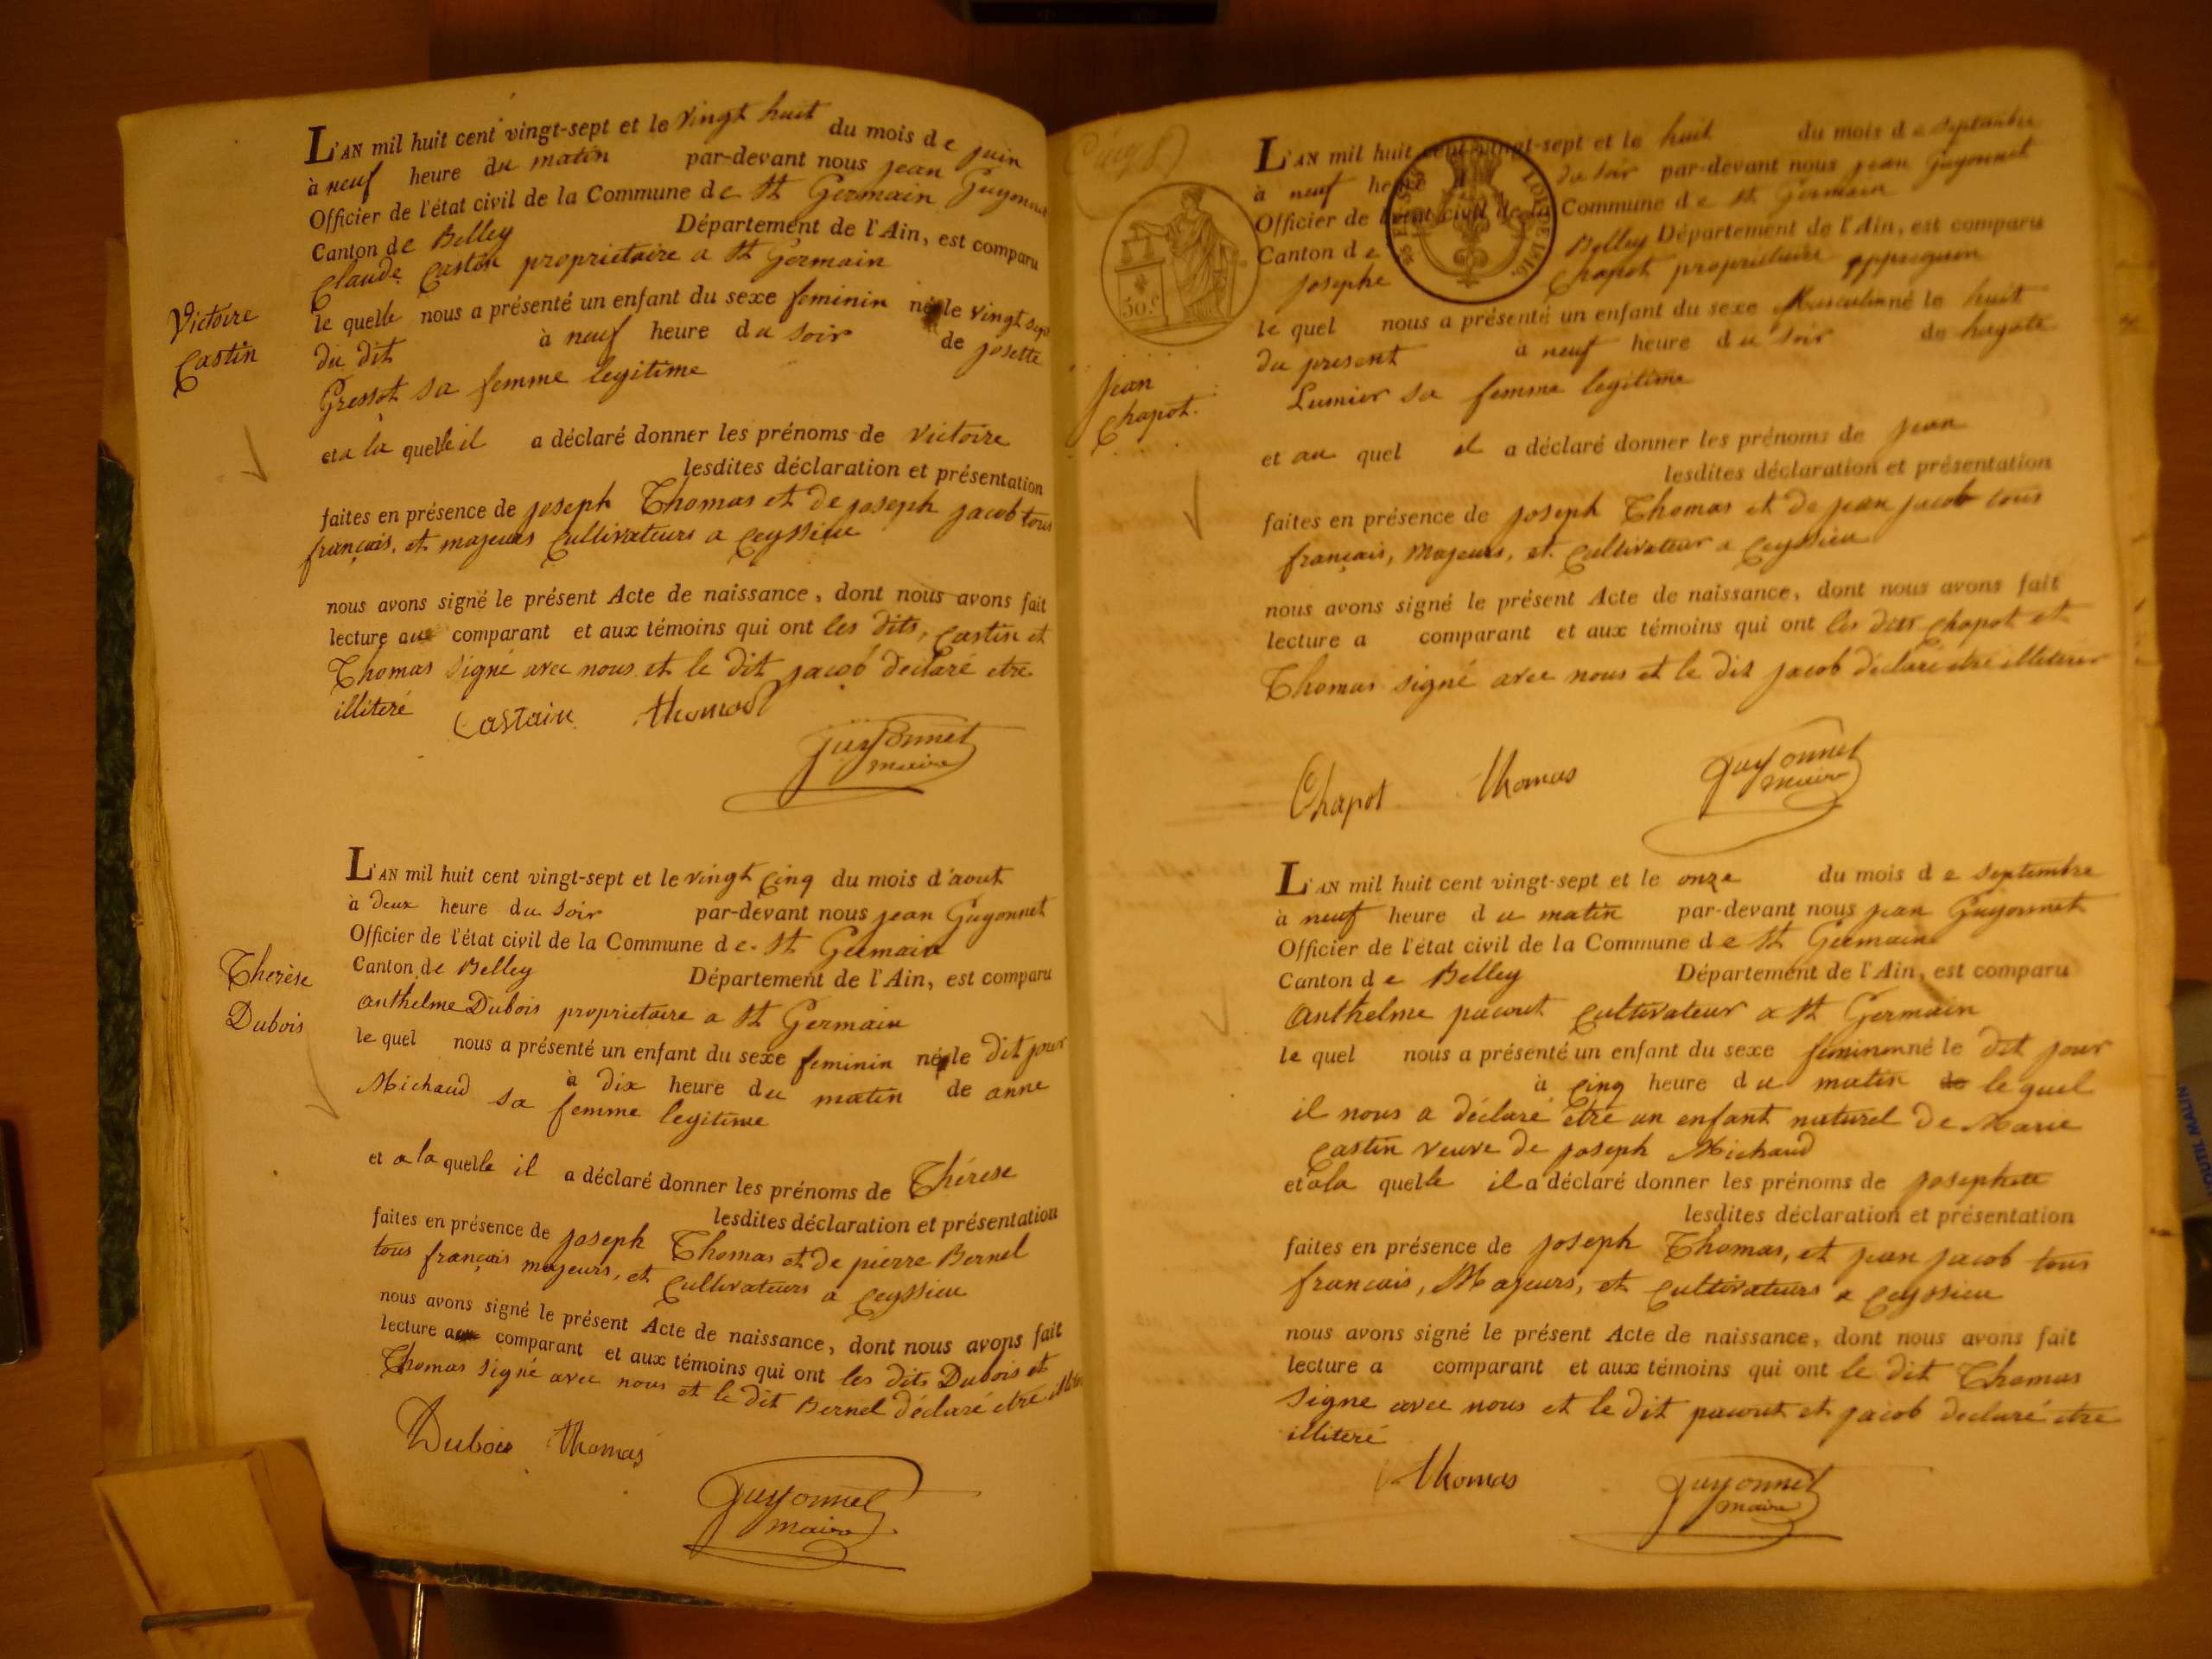 L'AN mil huit cent vingt-sept et le vingt huit du mois de juin
à neuf heure du matin par-devant nous jean Guyonnet
Officier de l'état civil de la Commune de St Germain
Canton de Belley Département de l'Ain, est comparu
Claude Castin proprietaire a St Germain
le quelle nous a présenté un enfant du sexe feminin né le vingt sept
du dit à neuf heure du soir de josette
Gressot sa femme legitime
Victoire
Castin
et a la quelle il a déclaré donner les prénoms de victoire
lesdites déclaration et présentation
faites en présence de joseph Thomas et de joseph jacob tous
français, et majeurs Cultivateurs a Ceyssieu
nous avons signé le présent Acte de naissance, dont nous avons fait
lecture au comparant et aux témoins qui ont les dits, Castin et
Thomas signé avec nous et le dit jacob declaré etre
illiteré
Castain thomas
guyonnet
maire
L'AN mil huit cent vingt-sept et le vingt cinq du mois d'aout
à deux heure du soir par-devant nous jean Guyonnet
Officier de l'état civil de la Commune de St Germain
Canton de Belley Département de l'Ain, est comparu
anthelme Dubois proprietaire a St Germain
le quel nous a présenté un enfant du sexe feminin né le dit jour
à dix heure du matin de anne
Michaud sa femme legitime
Therèse
Dubois
et a la quelle il a déclaré donner les prénoms de Thérèse
lesdites déclaration et présentation
faites en présence de joseph Thomas et de pierre Bernel
tous français majeurs, et Cultivateurs a Ceyssieu
nous avons signé le présent Acte de naissance, dont nous avons fait
lecture au comparant et aux témoins qui ont les dits Dubois et
Thomas signé avec nous et le dit Bernel déclaré etre
Dubois thomas
guyonnet
maire
L'AN mil huit cent vingt-sept et le huit du mois de septembre
à neuf heure du soir par-devant nous jean Guyonnet
Officier de l'état civil de la Commune de St Germain
Canton de Belley Département de l'Ain, est comparu
josephe Chapot proprietaire
le quel nous a présenté un enfant du sexe Masculin né le huit
du present à neuf heure du soir de
Lumier sa femme legitime
50.c
LOI DE 1816.
jean
Chapot.
et au quel il a déclaré donner les prénoms de jean
lesdites déclaration et présentation
faites en présence de joseph Thomas et de jean jacob tous
français, majeurs, et Cultivateur a Ceyssieu
nous avons signé le présent Acte de naissance, dont nous avons fait
lecture a comparant et aux témoins qui ont les dits Chapot et
Thomas signé avec nous et le dit jacob déclaré etre illiterer
Chapot thomas
guyonnet
maire
L'AN mil huit cent vingt-sept et le onze du mois de septembre
à neuf heure du matin par-devant nous jean Guyonnet
Officier de l'état civil de la Commune de St Germain
Canton de Belley Département de l'Ain, est comparu
anthelme pacout Cultivateur a St Germain
le quel nous a présenté un enfant du sexe feminin né le dit jour
à cinq heure du matin de le quel
il nous a déclaré etre un enfant naturel de Marie
Castin veuve de joseph Michaud
et a la quelle il a déclaré donner les prénoms de josephette
lesdites déclaration et présentation
faites en présence de joseph Thomas, et jean jacob tous
francais, Majeurs, et Cultivateurs a Ceyssieu
nous avons signé le présent Acte de naissance, dont nous avons fait
lecture a comparant et aux témoins qui ont le dit Thomas
signe avec nous et le dit pacout et jacob declaré etre
illiteré
thomas
guyonnet
maire